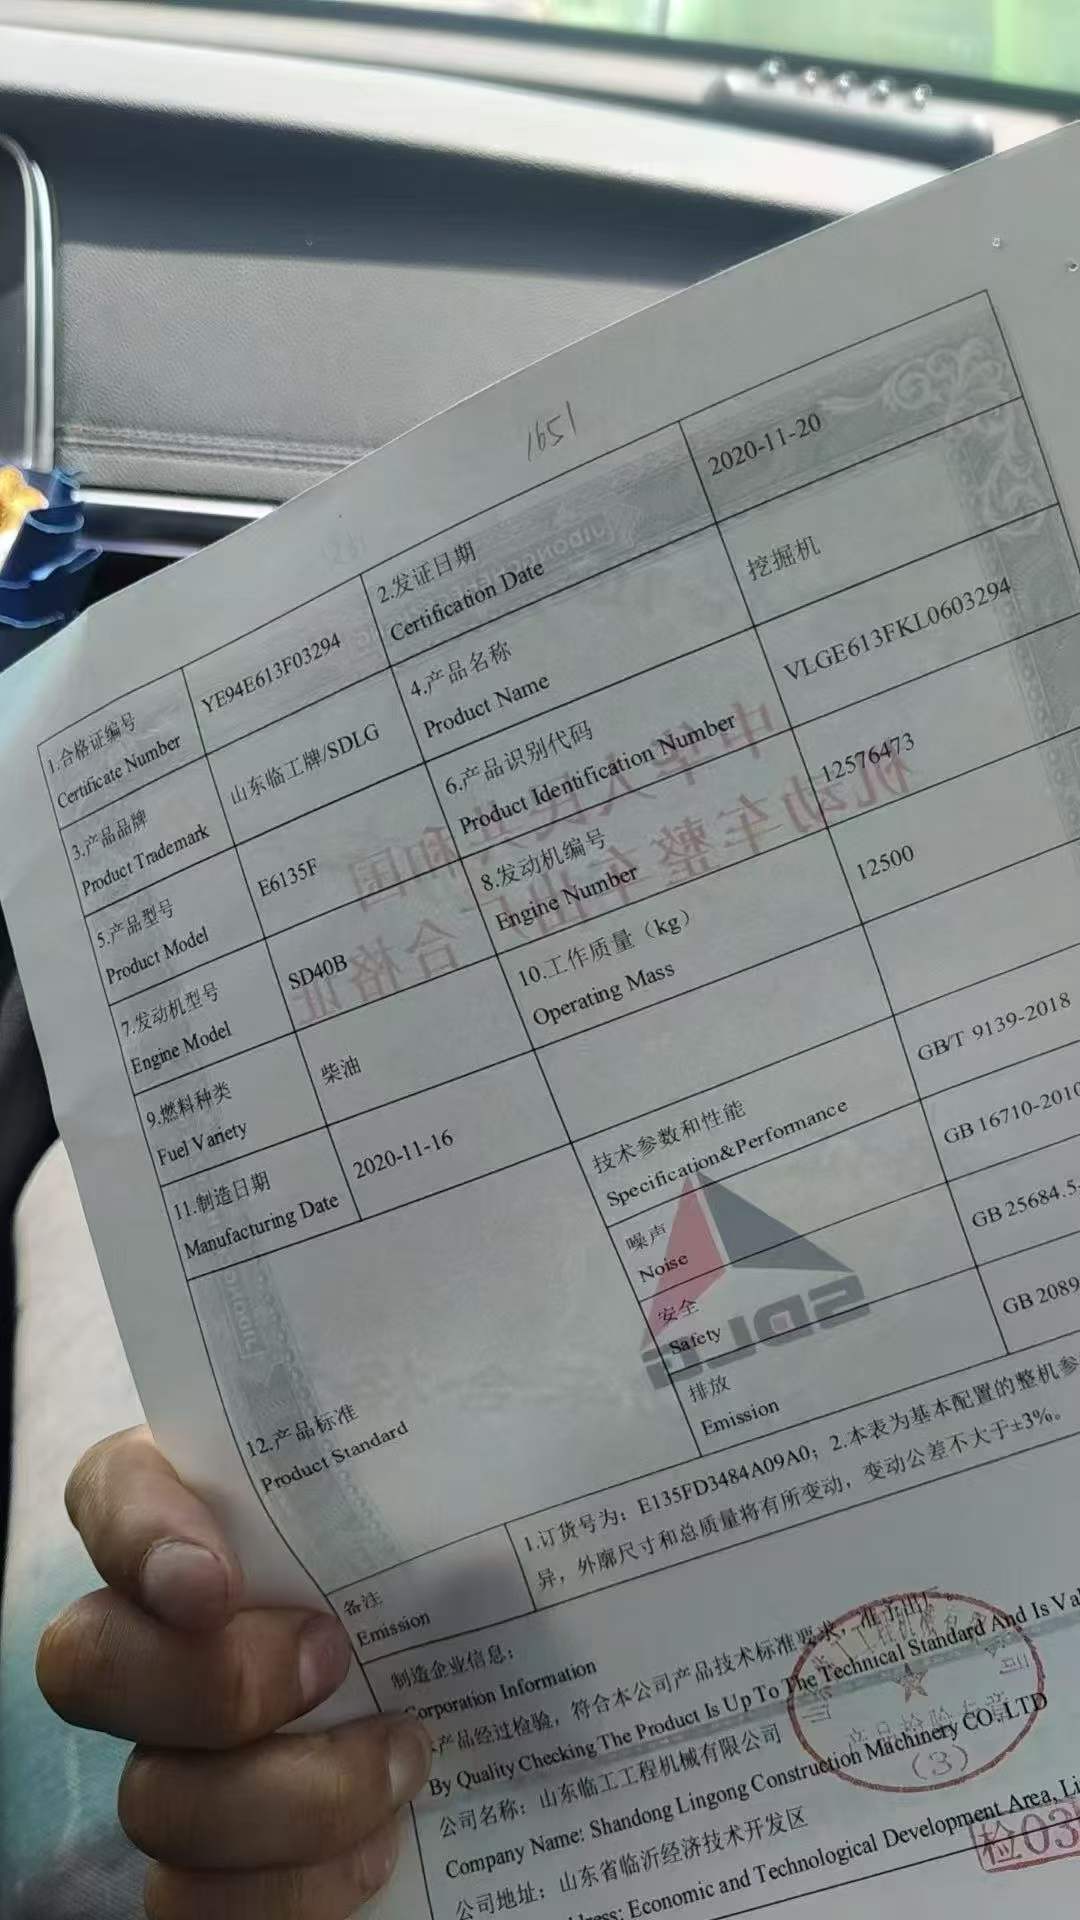 1651
1.合格证编号
Certificate Number
YE94E613F03294
2.发证日期
Certification Date
2020-11-20
3.产品品牌
Product Trademark
山东临工牌/SDLG
4.产品名称
Product Name
挖掘机
5.产品型号
Product Model
E6135F
6.产品识别代码
Product Identification Number
VLGE613FKL0603294
7.发动机型号
Engine Model
SD40B
8.发动机编号
Engine Number
12576473
9.燃料种类
Fuel Variety
柴油
10.工作质量（kg）
Operating Mass
12500
11.制造日期
Manufacturing Date
2020-11-16
12.产品标准
Product Standard
技术参数和性能
Specification&Performance
GB/T 9139-2018
噪声
Noise
GB 16710-2010
安全
Safety
GB 25684.5-
排放
Emission
GB 2089
备注
Emission
1.订货号为：E135FD3484A09A0；2.本表为基本配置的整机参
异，外廓尺寸和总质量将有所变动，变动公差不大于±3%。
制造企业信息：
Corporation Information
产品经过检验，符合本公司产品技术标准要求，准予出厂
By Quality Checking The Product Is Up To The Technical Standard And Is Val
公司名称：山东临工工程机械有限公司
Company Name: Shandong Lingong Construction Machinery CO.LTD
公司地址：山东省临沂经济技术开发区
Economic and Technological Development Area, Li
中华人民共和国
机动车整车出厂合格证
SDLG
产品检验专章
(3)
检03